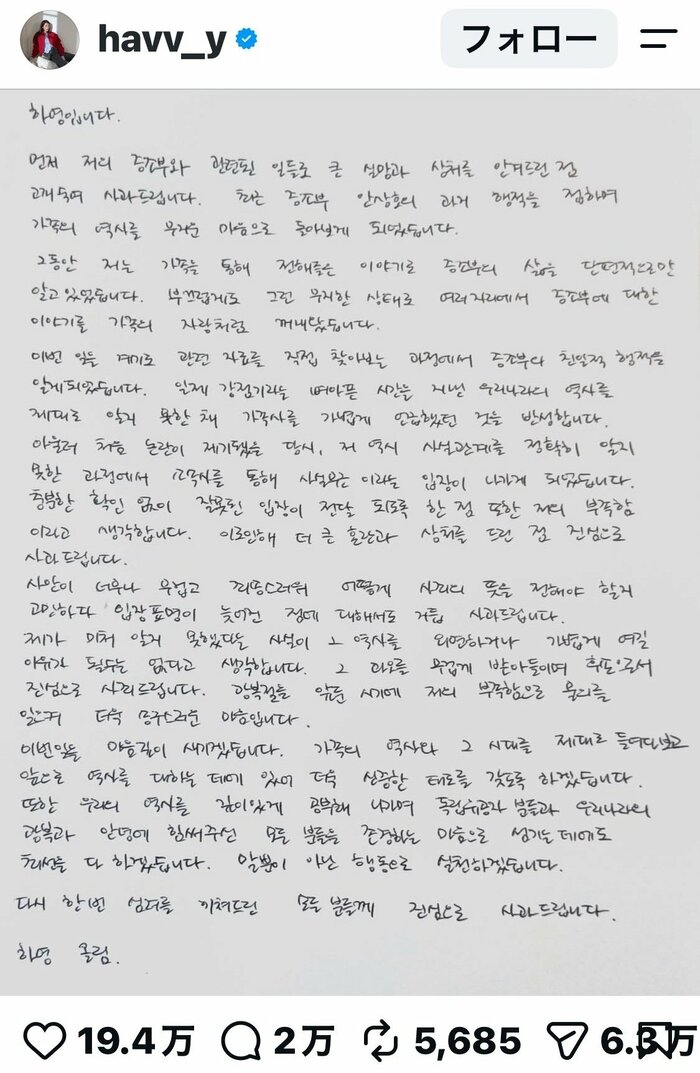 havv_y
フォロー
하영입니다.
먼저 저의 증조부와 관련된 일들로 큰 실망과 상처를 안겨드린 점
고개 숙여 사과드립니다. 최근 증조부 안상호의 과거 행적을 접하며
가족의 역사를 무거운 마음으로 돌아보게 되었습니다.
그동안 저는 가족을 통해 전해들은 이야기로 증조부의 삶을 단편적으로만
알고 있었습니다. 부끄럽게도 그런 무지한 상태로 여러 자리에서 증조부에 대한
이야기를 가족의 자랑처럼 꺼내왔습니다.
이번 일을 계기로 관련 자료를 직접 찾아보는 과정에서 증조부의 친일적 행적을
알게되었습니다. 일제 강점기라는 뼈아픈 시간을 지낸 우리나라의 역사를
제대로 알지 못한 채 가족사를 가볍게 언급했던 것을 반성합니다.
아울러 처음 논란이 제기됐을 당시, 저 역시 사실관계를 정확히 알지
못한 과정에서 소속사를 통해 사실무근 이라는 입장이 나가게 되었습니다.
충분한 확인 없이 잘못된 입장이 전달 되도록 한 점 또한 저의 부족함
이라고 생각합니다. 이로인해 더 큰 혼란과 상처를 드린 점 진심으로
사과드립니다.
사안이 너무나 무겁고 죄송스러워 어떻게 사죄의 뜻을 전해야 할지
고민하다 입장표명이 늦어진 점에 대해서도 거듭 사과드립니다.
제가 미처 알지 못했다는 사실이 그 역사를 외면하거나 가볍게 여길
이유가 될수는 없다고 생각합니다. 그 과오를 무겁게 받아들이며 후손으로서
진심으로 사죄드립니다. 광복절을 앞둔 시기에 저의 부족함으로 물의를
일으켜 더욱 송구스러운 마음입니다.
이번일을 마음깊이 새기겠습니다. 가족의 역사와 그 시대를 제대로 들여다보고
앞으로 역사를 대하는 데에 있어 더욱 신중한 태도를 갖도록 하겠습니다.
또한 우리의 역사를 깊이있게 공부해 나가며 독립유공자 분들과 우리나라의
광복과 안녕에 힘써주신 모든 분들을 존경하는 마음으로 섬기는 데에도
최선을 다 하겠습니다. 말뿐이 아닌 행동으로 실천하겠습니다.
다시 한번 심려를 끼쳐드린 모든 분들께 진심으로 사과드립니다.
하영 올림.
19.4万 2万 5,685 6.3万